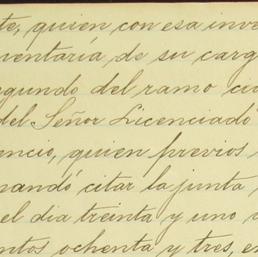 te, quien con esa inve
ventaría, de su carg
egundo del ramo ci
del Señor Licenciado
encio, quien previos
mandó citar la junta
el dia treinta y uno
ntos ochenta y tres, e